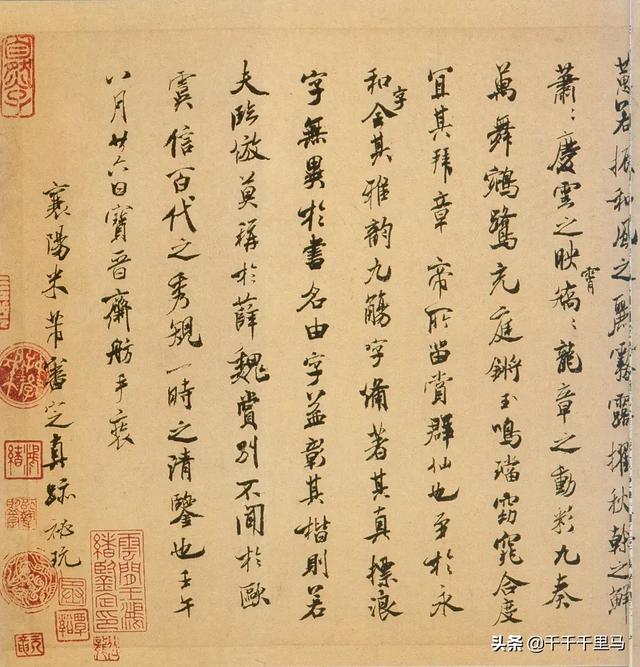 若振和風之麗霧露擢秋幹之鮮
蕭〻慶雲之映霄矯〻龍章之動彩九奏
萬舞鵷鷺充庭鏘玉鳴璫窈窕合度
宜其拜章帝所留賞群仙也至於永
和字全其雅韵九觴字備著其真標浪
字無異於書名由字益彰其楷則若
夫臨倣莫稱於薛魏賞別不聞於歐
虞信百代之秀規一時之清鑒也壬午
八月廿六日寶晉齋舫手裝
襄陽米芾審定真跡秘玩
雲間王鴻緒鑒定印
頭条 @千千千里马